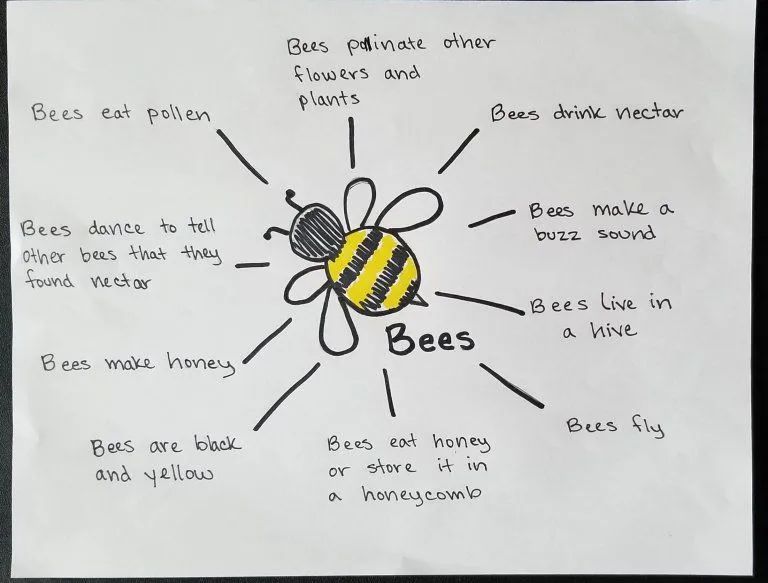 Bees pollinate other
flowers and
plants
Bees eat pollen
Bees drink nectar
Bees make a
buzz sound
Bees dance to tell
other bees that they
found nectar
Bees live in
a hive
Bees
Bees make honey
Bees fly
Bees are black
and yellow
Bees eat honey
or store it in
a honeycomb